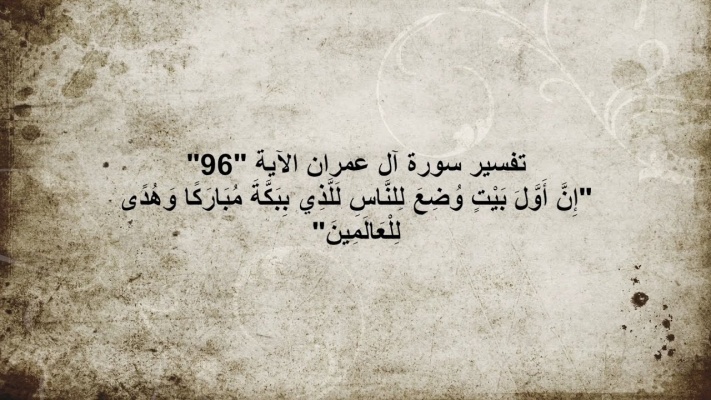 تفسير سورة آل عمران الآية "96"
"إِنَّ أَوَّلَ بَيْتٍ وُضِعَ لِلنَّاسِ لَلَّذِي بِبَكَّةَ مُبَارَكًا وَهُدًى
لِلْعَالَمِينَ"